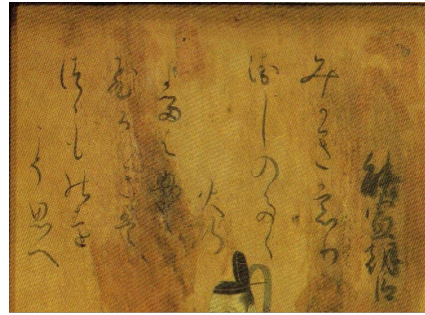 能宣朝臣
みかきもり
衛しのたく
火乃
よるはもえ
ひるはきえ
つゝものを
こそ思へ